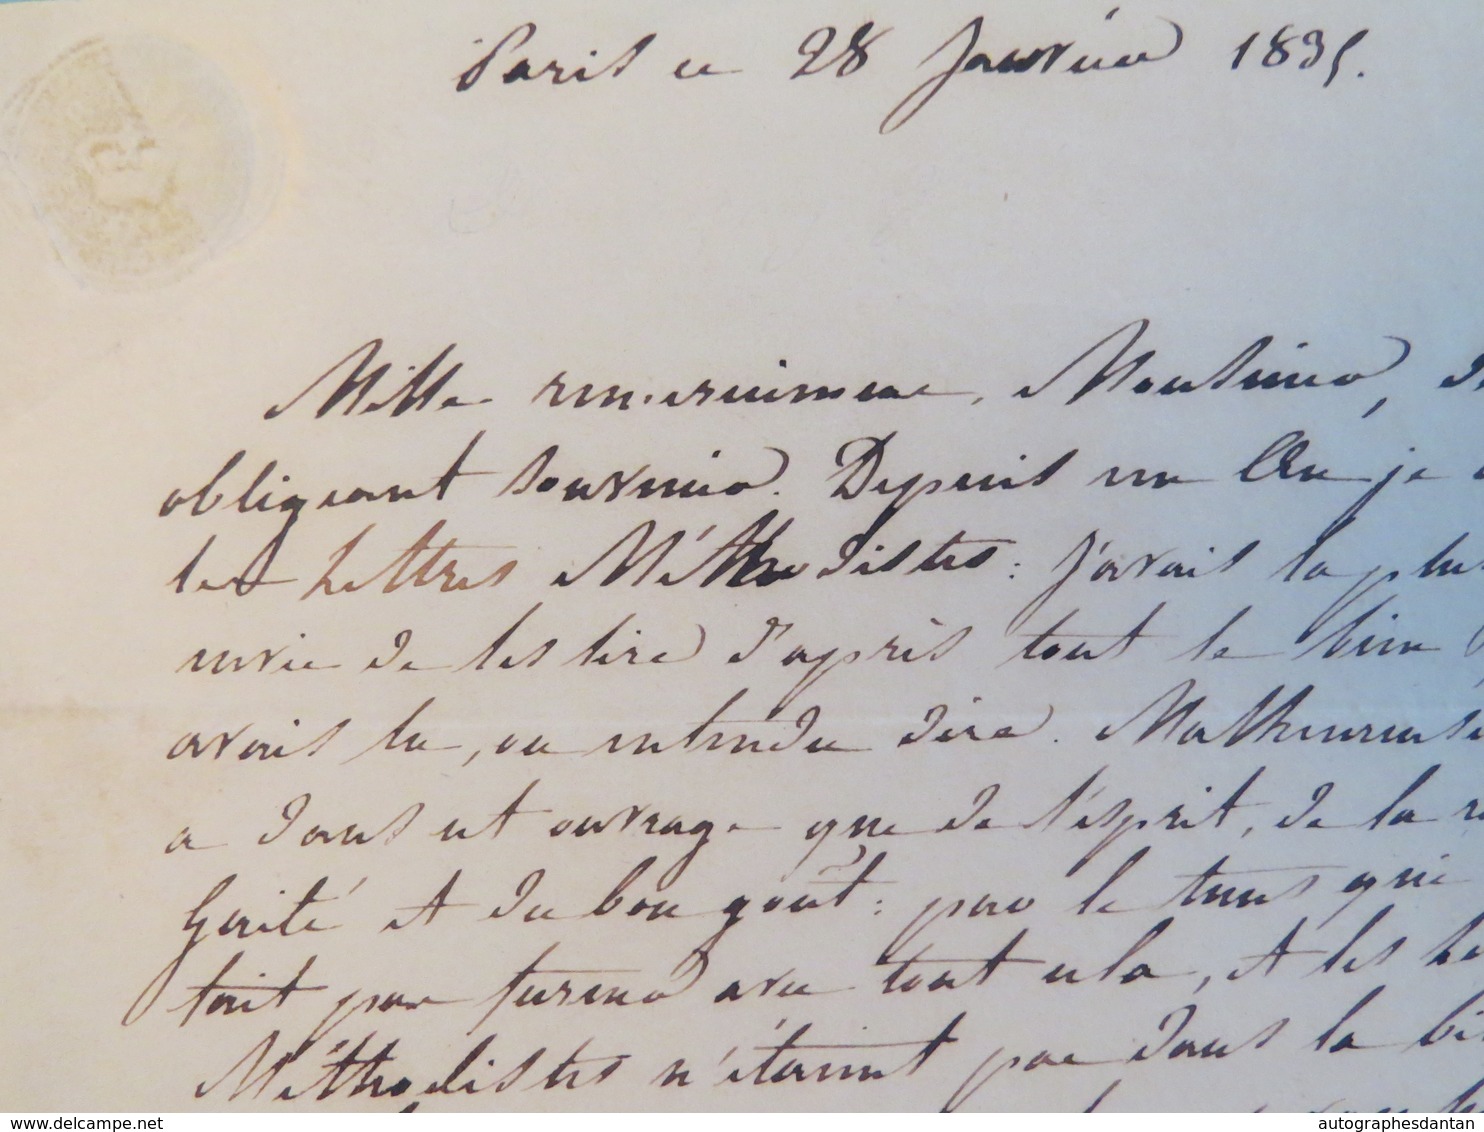 Paris ce 28 Janvier 1835.
Mille remerciemens, Monsieur, d
obligeant souvenir. Depuis un an je
les Lettres Méthodistes : j'avais la plus
envie de les lire d'après tout le bien
avais lu, ou entendu dire. Malheureuse
a dans cet ouvrage que de l'esprit, de la
Gaité et du bon goût : par le tems qui
fait pas fureur avec tout cela, et les Le
Méthodistes n'étaient pas dans la bi
autographesdantan